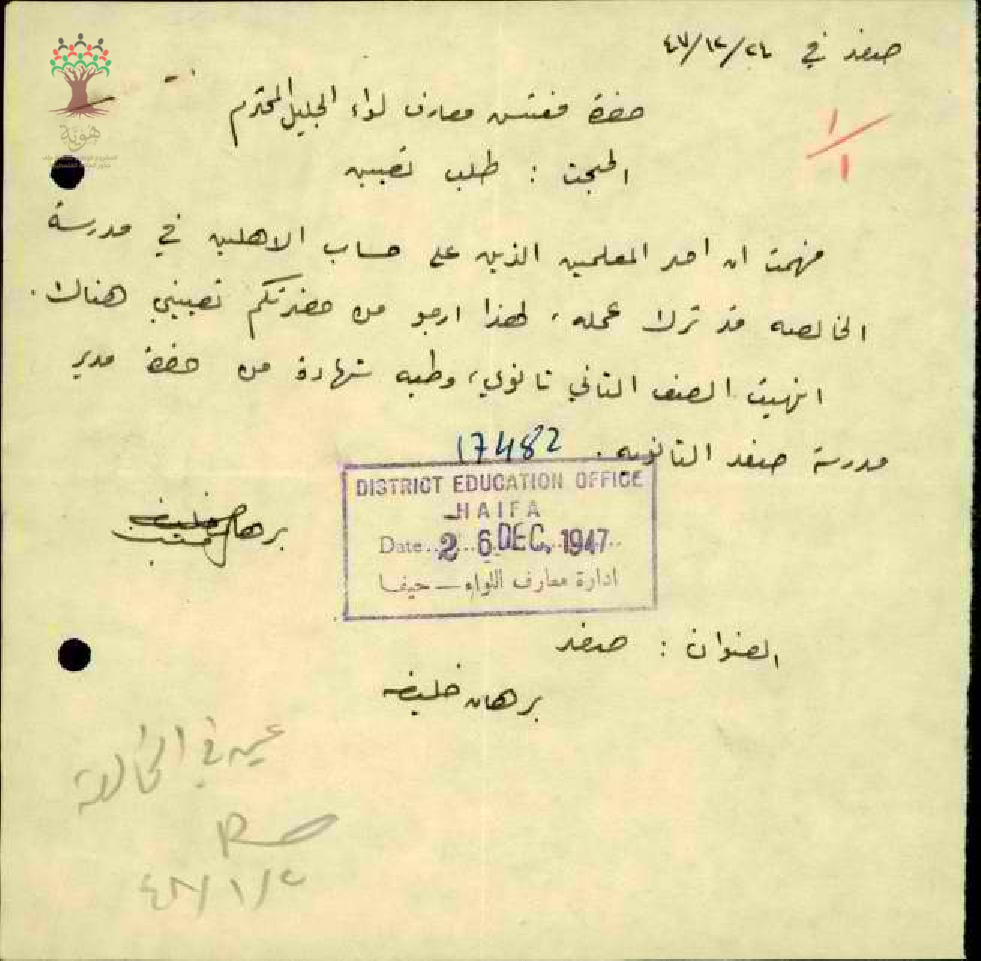 صفد في ٤٧/١٢/٢٤
حضرة مفتش معارف لواء الجليل المحترم
١/١
المبحث : طلب تعيين
فهمت ان احد المعلمين الذين على حساب الاهلين في مدرسة
الخالصه قد ترك عمله، لهذا ارجو من حضرتكم تعييني هناك.
انهيت الصف الثاني ثانوي، وطيه شهادة من حضرة مدير
مدرسة صفد الثانويه.
17482
DISTRICT EDUCATION OFFICE
HAIFA
Date 26 DEC. 1947
ادارة معارف اللواء – حيفا
برهان خليفه
العنوان : صفد
برهان خليفه
عين في الخالصة
٤٨/١/٢
هوية